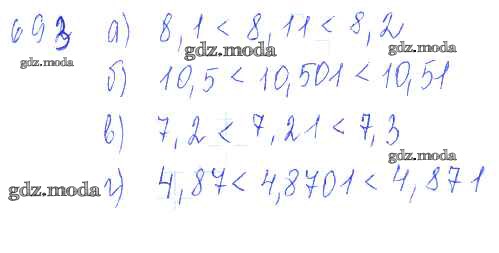 693 а) 8,1 < 8,11 < 8,2
gdz.moda gdz.moda gdz.moda
б) 10,5 < 10,501 < 10,51
в) 7,2 < 7,21 < 7,3
gdz.moda
г) 4,87 < 4,8701 < 4,871
gdz.moda